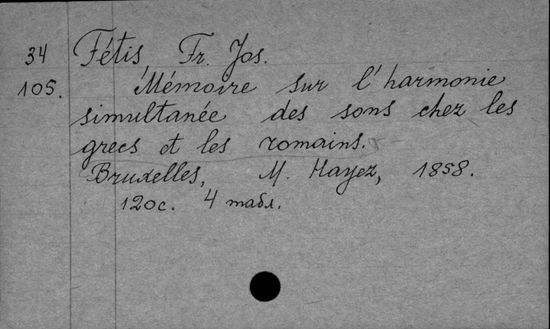 34 Fétis, Fr. Jos.
105. Mémoire sur l'harmonie
simultanée des sons chez les
grecs et les romains.
Bruxelles, M. Hayez, 1858.
120c. 4 табл.